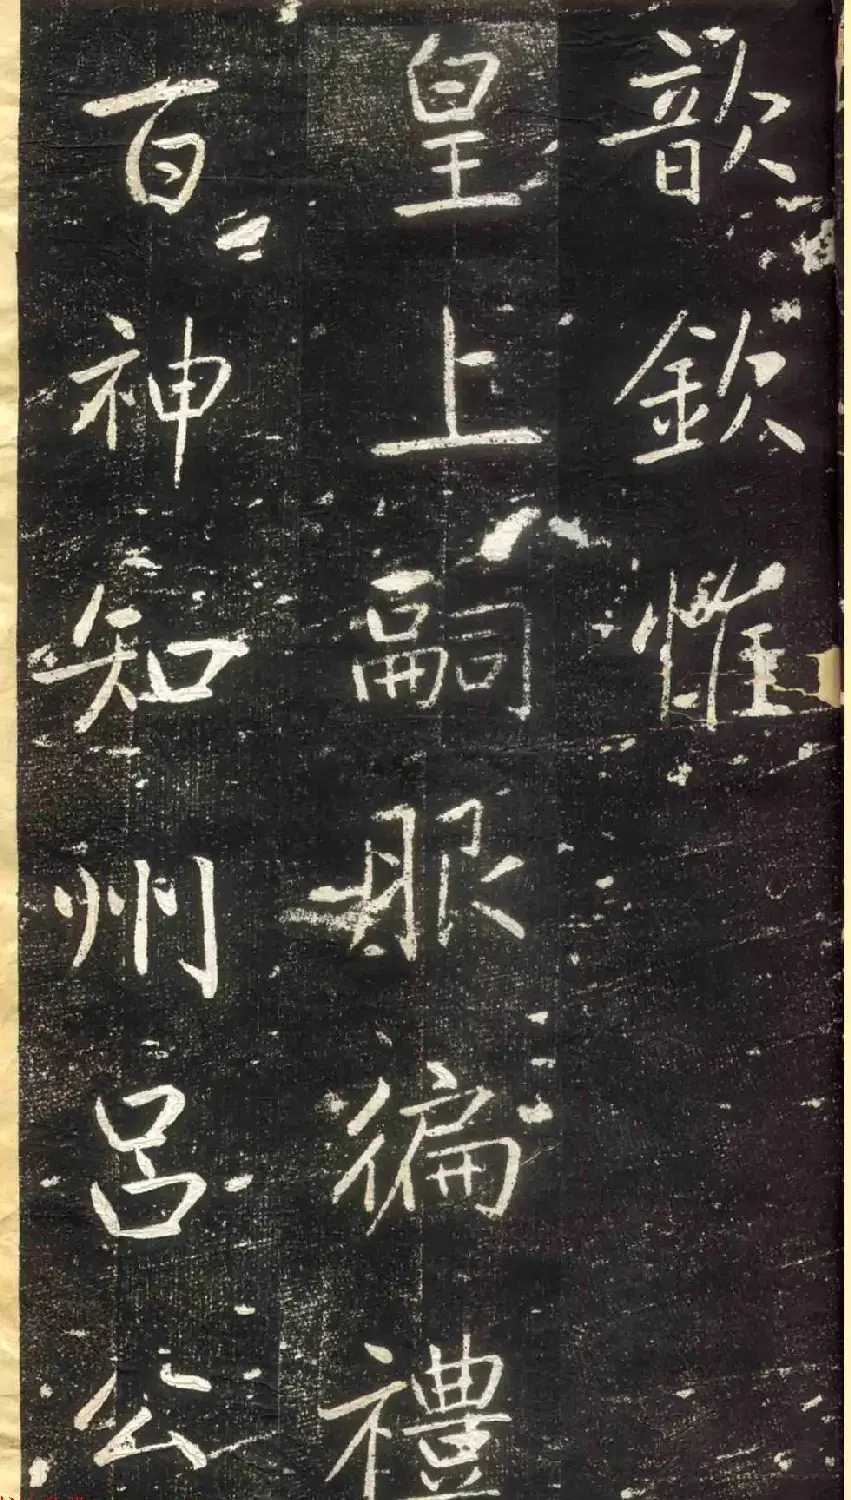 歆欽惟
皇上嗣服徧禮
百神知州呂公